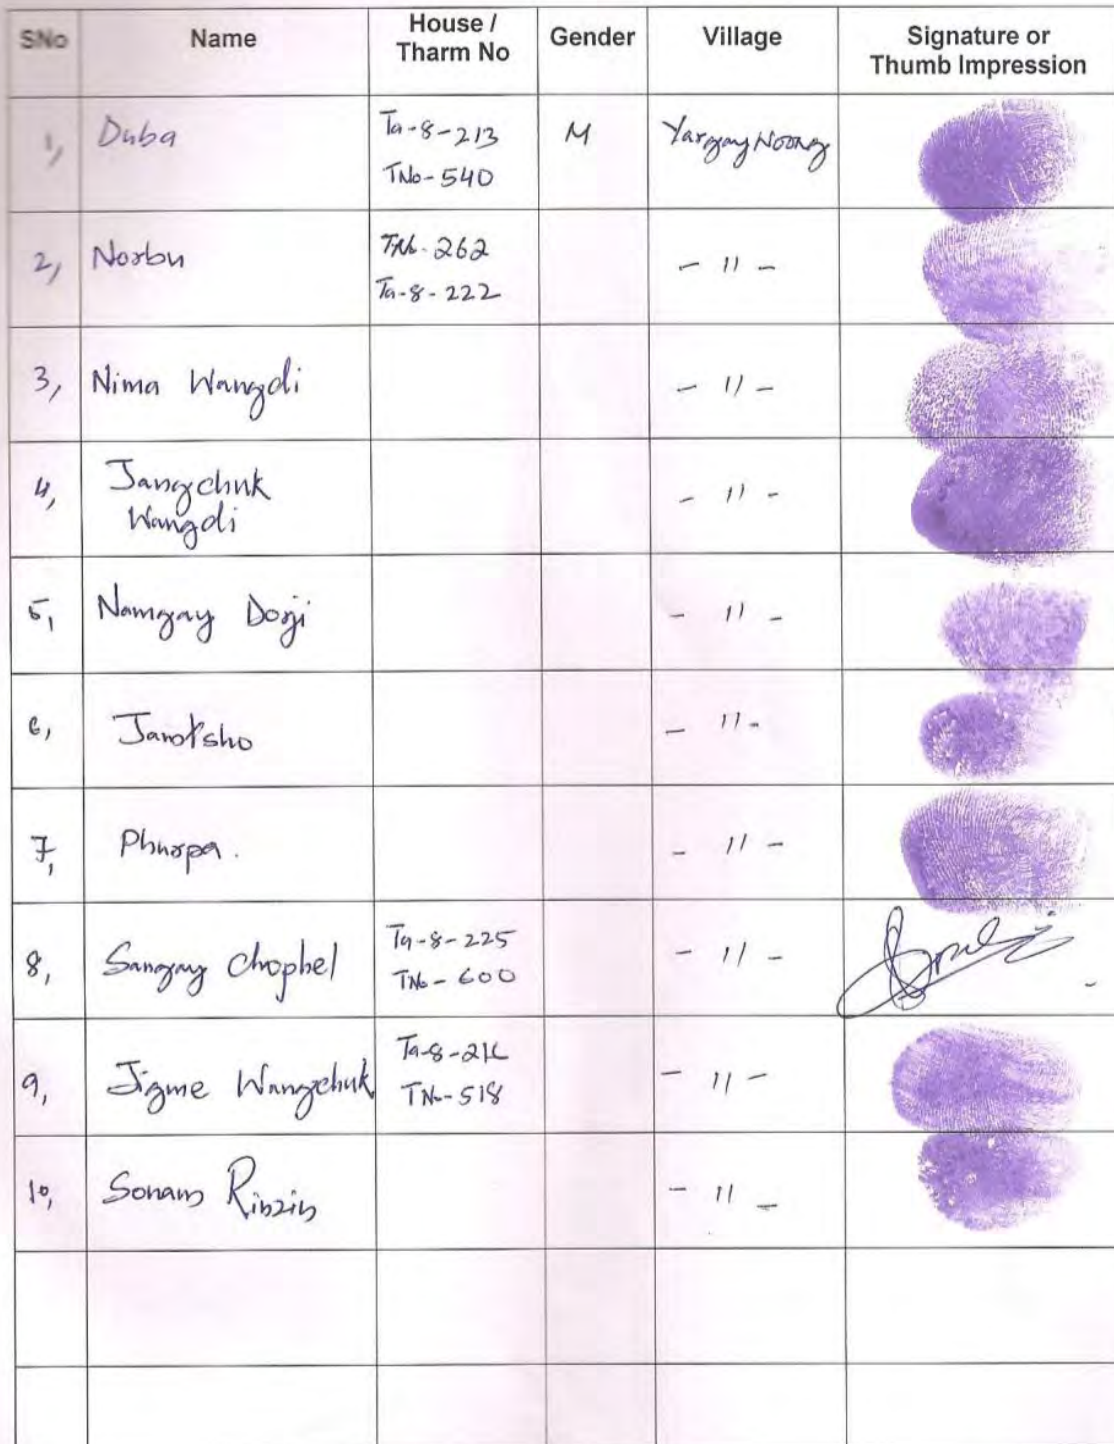 SNo Name House / Tharm No Gender Village Signature or Thumb Impression
1, Duba Ta-8-213 M Yargay Noong
TNo-540
2, Norbu TNo-262 - 11 -
Ta-8-222
3, Nima Wangdi - 11 -
4, Jangchuk - 11 -
Wangdi
5, Namgay Dorji - 11 -
6, Jamotsho - 11 -
7, Phurpa. - 11 -
8, Sangay Chophel Ta-8-225 - 11 -
TNo-600
9, Jigme Wangchuk - 11 -
TNo-518
10, Sonam Rinzin - 11 -